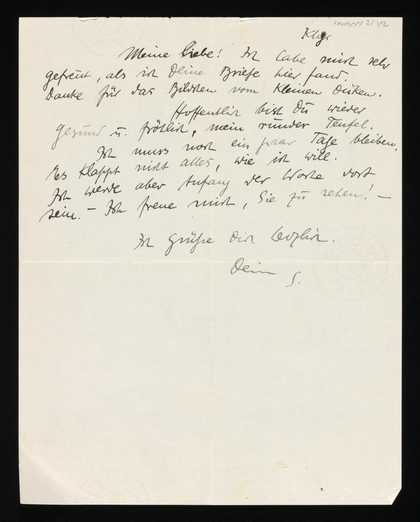 Klgf.
Meine Liebe! Ich habe mich sehr
gefreut, als ich Deine Briefe hier fand.
Danke für das Bildchen vom kleinen Dicken.
Hoffentlich bist Du wieder
gesund u. fröhlich, mein runder Teufel.
Ich muss noch ein paar Tage bleiben.
Es klappt nicht alles, wie ich will.
Ich werde aber Anfang der Woche dort
sein. – Ich freue mich, Sie zu sehen! –
Ich grüße Dich herzlich.
Dein S.